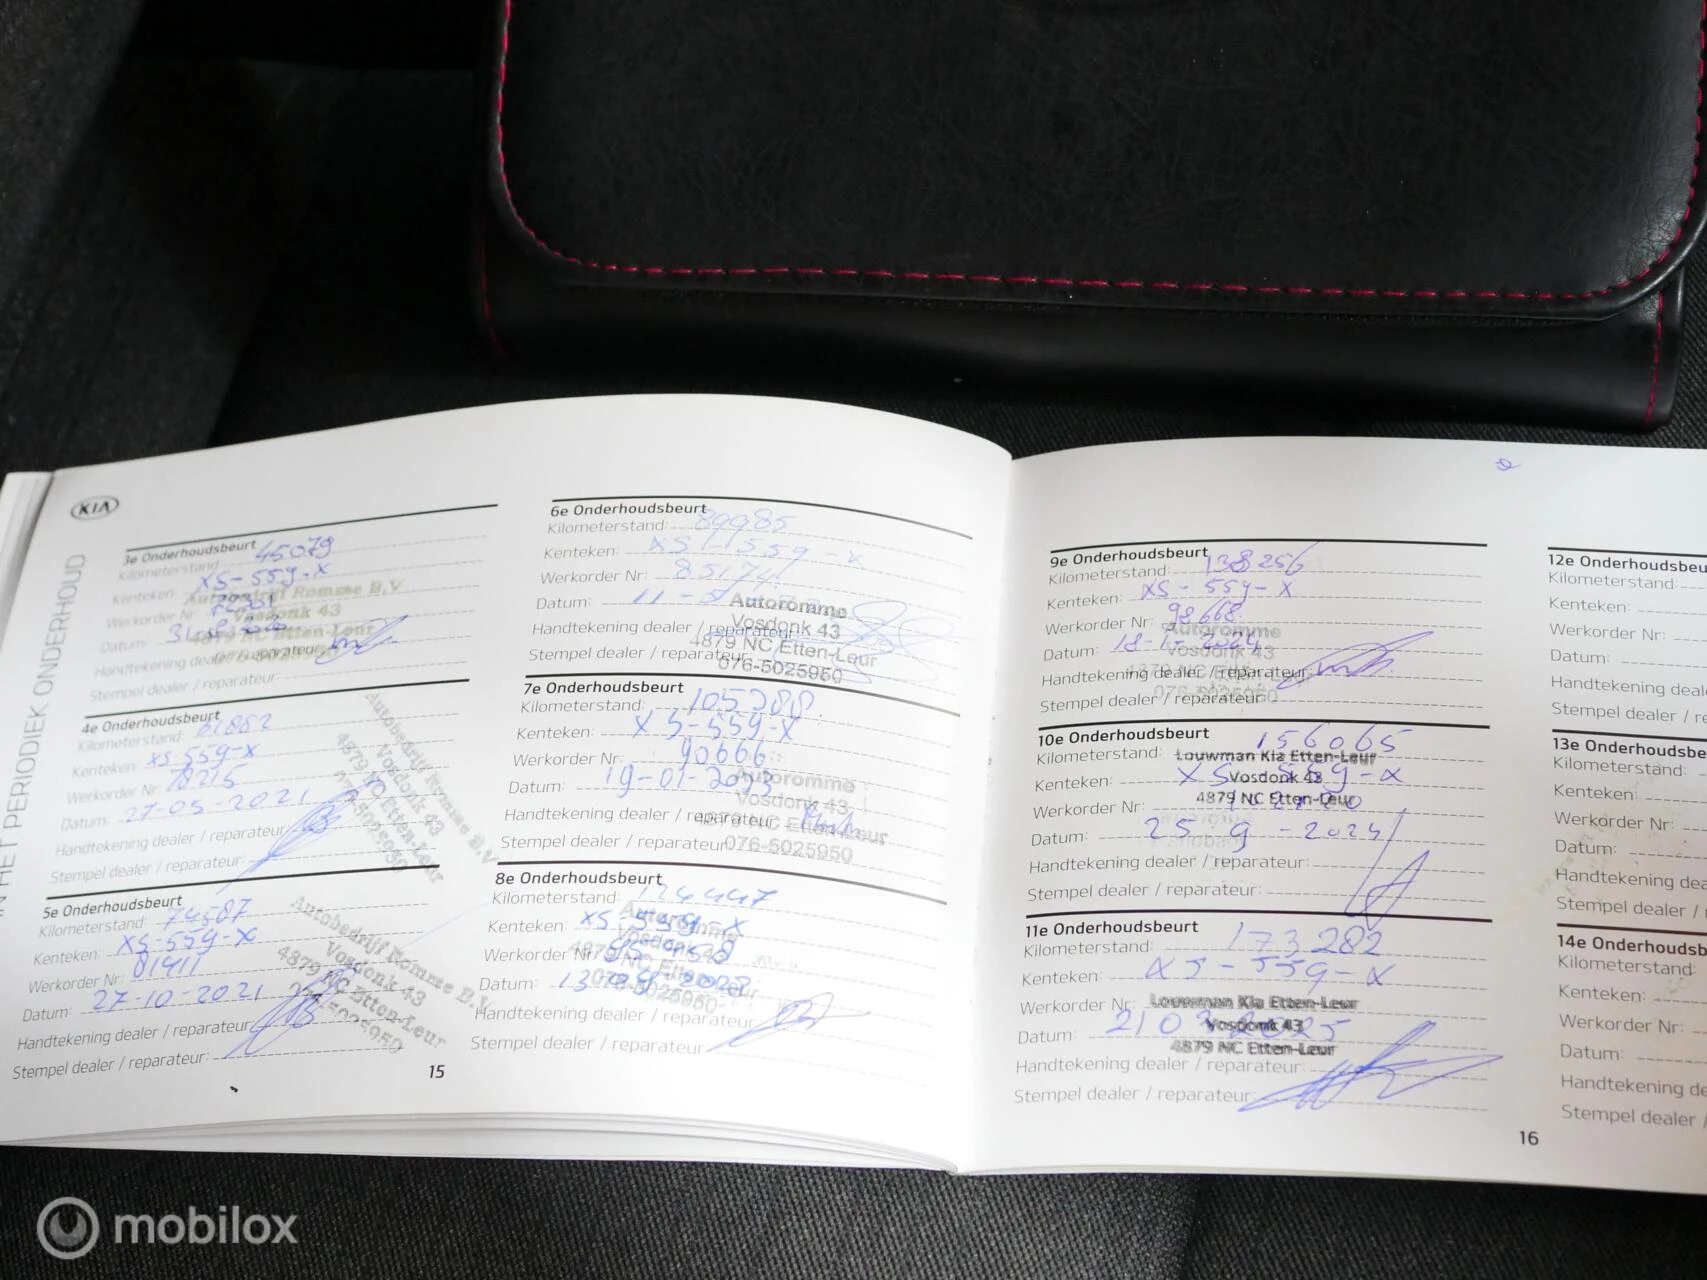 KIA
IN HET PERIODIEK ONDERHOUD
3e Onderhoudsbeurt
Kilometerstand: 45079
Kenteken: XS-559-X
Werkorder Nr:
Datum:
Handtekening dealer / reparateur:
Stempel dealer / reparateur:
Autobedrijf Romme B.V.
Vosdonk 43
4879 NC Etten-Leur
076-5025950
4e Onderhoudsbeurt
Kilometerstand: 61882
Kenteken: XS-559-X
Werkorder Nr: 78215
Datum: 27-05-2021
Handtekening dealer / reparateur:
Stempel dealer / reparateur:
Autobedrijf Romme B.V.
Vosdonk 43
4879 NC Etten-Leur
076-5025950
5e Onderhoudsbeurt
Kilometerstand: 74587
Kenteken: XS-559-X
Werkorder Nr: 81411
Datum: 27-10-2021
Handtekening dealer / reparateur:
Stempel dealer / reparateur:
Autobedrijf Romme B.V.
Vosdonk 43
4879 NC Etten-Leur
076-5025950
6e Onderhoudsbeurt
Kilometerstand: 89985
Kenteken: XS-559-X
Werkorder Nr: 85174
Datum:
Handtekening dealer / reparateur:
Stempel dealer / reparateur:
Autoromme
Vosdonk 43
4879 NC Etten-Leur
076-5025950
7e Onderhoudsbeurt
Kilometerstand:
Kenteken: XS-559-X
Werkorder Nr: 90666
Datum: 19-01-2023
Handtekening dealer / reparateur:
Stempel dealer / reparateur:
Autoromme
Vosdonk 43
4879 NC Etten-Leur
076-5025950
8e Onderhoudsbeurt
Kilometerstand: 124447
Kenteken: XS-559-X
Werkorder Nr:
Datum:
Handtekening dealer / reparateur:
Stempel dealer / reparateur:
Autoromme
Vosdonk 43
4879 NC Etten-Leur
076-5025950
15
9e Onderhoudsbeurt
Kilometerstand: 138256
Kenteken: XS-559-X
Werkorder Nr: 98668
Datum:
Handtekening dealer / reparateur:
Stempel dealer / reparateur:
Autoromme
Vosdonk 43
4879 NC Etten-Leur
076-5025950
10e Onderhoudsbeurt
Kilometerstand: 156065
Kenteken: XS-559-X
Werkorder Nr:
Datum: 25-9-2024
Handtekening dealer / reparateur:
Stempel dealer / reparateur:
Louwman Kia Etten-Leur
Vosdonk 43
4879 NC Etten-Leur
11e Onderhoudsbeurt
Kilometerstand: 173282
Kenteken: XS-559-X
Werkorder Nr:
Datum: 21032025
Handtekening dealer / reparateur:
Stempel dealer / reparateur:
Louwman Kia Etten-Leur
Vosdonk 43
4879 NC Etten-Leur
16
12e Onderhoudsbeu
Kilometerstand:
Kenteken:
Werkorder Nr:
Datum:
Handtekening deale
Stempel dealer / re
13e Onderhoudsbe
Kilometerstand:
Kenteken:
Werkorder Nr:
Datum:
Handtekening dea
Stempel dealer / r
14e Onderhoudsb
Kilometerstand:
Kenteken:
Werkorder Nr:
Datum:
Handtekening de
Stempel dealer /
mobilox